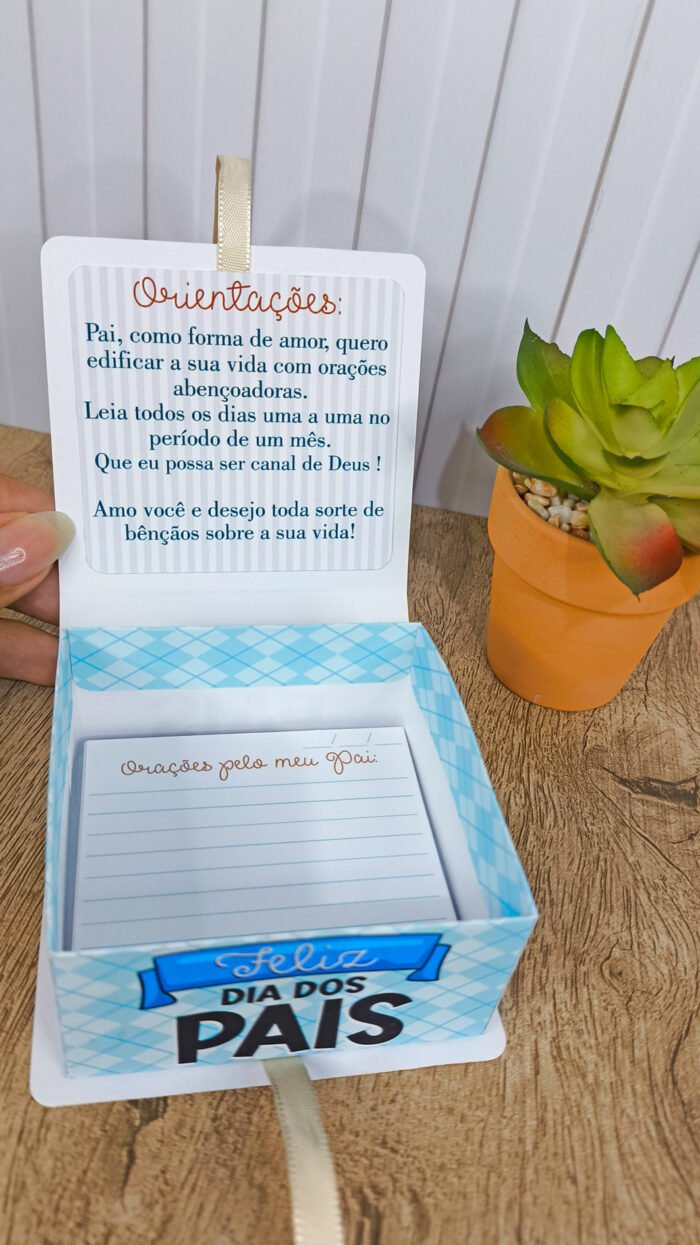 Orientações:
Pai, como forma de amor, quero
edificar a sua vida com orações
abençoadoras.
Leia todos os dias uma a uma no
período de um mês.
Que eu possa ser canal de Deus !
Amo você e desejo toda sorte de
bênçãos sobre a sua vida!
__/__/__
Orações pelo meu Pai:
Feliz
DIA DOS
PAIS